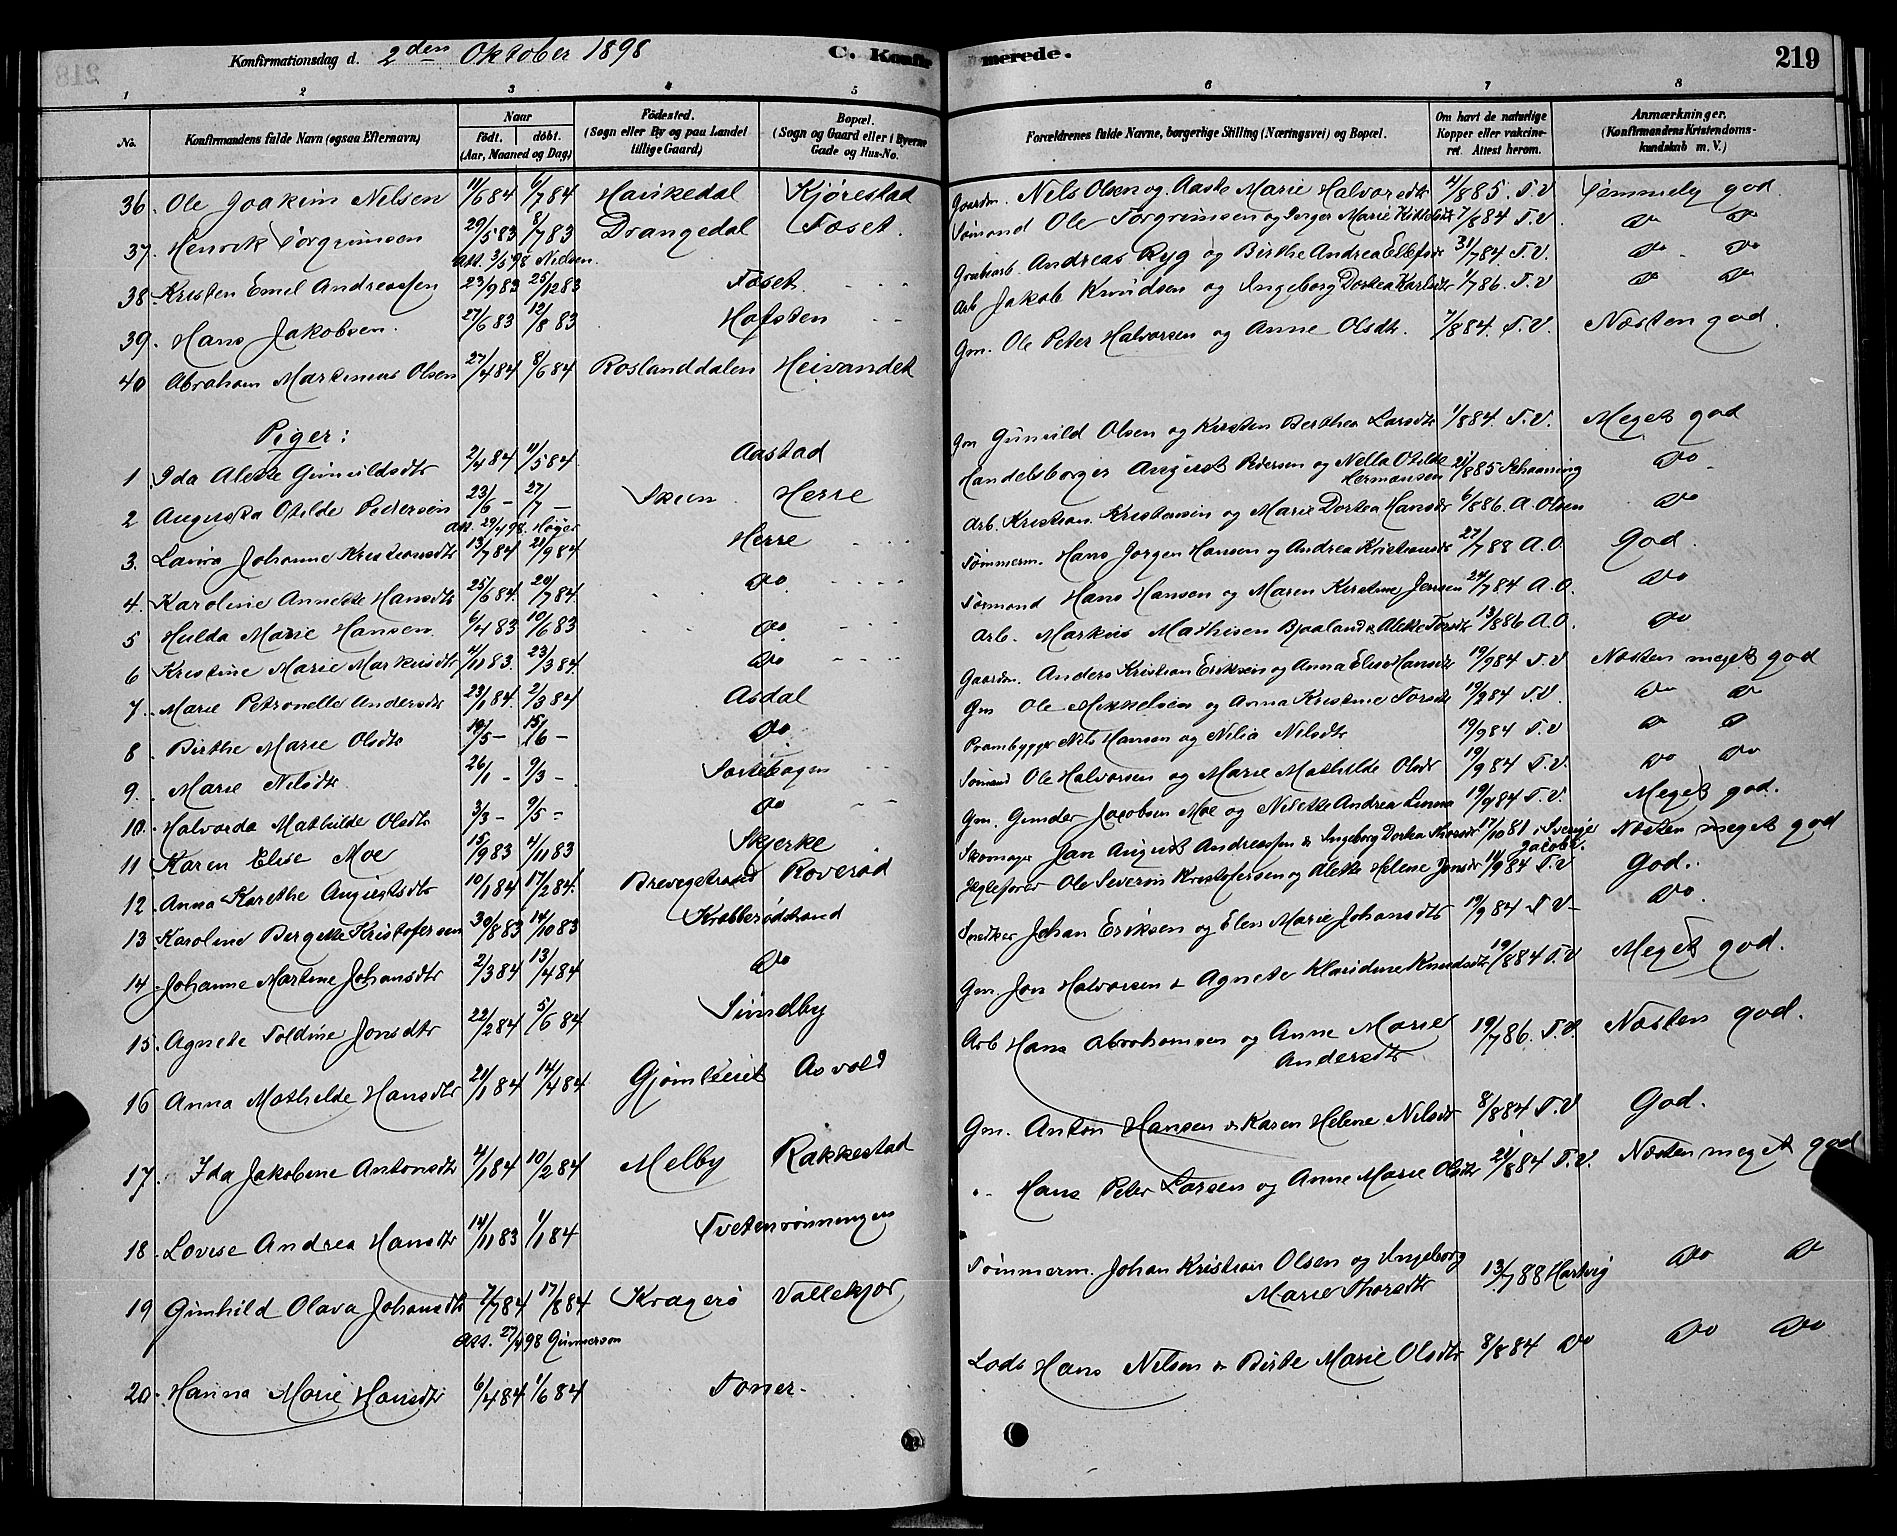 218
Konfirmationsdag d. 2den Oktober 1898 C. Konfirmerede. 219
1 2 3 4 5 6 7 8
No. Konfirmandens fulde Navn (ogsaa Efternavn) Naar født. døbt. (Aar, Maaned og Dag) Fødested. (Sogn eller By og paa Landet tillige Gaard) Bopæl. (Sogn og Gaard eller i Byerne Gade og Hus-No. Forældrenes fulde Navne, borgerlige Stilling (Næringsvei) og Bopæl. Om havt de naturlige Kopper eller vakcineret. Attest herom. Anmærkninger. (Konfirmandens Kristendomskundskab m. V.)
36. Ole Joakim Nelsen 11/6 84 6/7 84 Hankedal Kjørestad Gaardm. Nels Olsen og Aaste Marie Halvorsdtr 4/8 85. T.V. Temmelig god.
37. Henrik Torgrimsen 29/5 83 8/7 83 Drangedal Føset. Sømand Ole Torgrimsen og Inger Marie 7/8 84 T.V. Do Do
Att. 3/5 98 Nielsen.
38. Kristen Emil Andreassen 23/9 83 25/12 83 Føset. Grubearb. Andreas Ryg og Birthe Andrea Ellefsdr 31/7 84 T.V. Do Do
39. Hans Jakobsen. 27/6 83 12/8 83 Hafsten Arb Jakob Knudsen og Ingeborg Dortea Karlsdtr 1/7 86. T.V Do Do
40 Abraham Martinius Olsen 27/4 84 8/6 84 Roslanddalen Heivandet Gm. Ole Peter Halvorsen og Anne Olsdtr. 7/8 84. T.V. Næsten god.
Piger:
1 Ida Alette Gunuldsdtr 2/4 84 11/5 84. Aastad Gm Gunuld Olsen og Kirsten Berthea Larsdtr 1/8 84. T.V. Meget god
2 Augusta Otilde Pedersen 23/6 - 27/7 - Skien Herre Handelsborger August Pedersen og Nella Otilde Hermansen 21/8 85 Schaaning Do
Att. 29/4 98. Høyer
3. Laura Johanne Kristiansdtr 13/7 84 21/9 84 Herre Arb. Kristian Kristensen og Marie Dortea Hansdr 6/8 86. A. Olsen Do
4. Karoline Annette Hansdtr 25/6 84. 20/7 84. Do Tømmerm. Hans Jørgen Hansen og Andrea Kristiansdr 27/7 88 A.O. God.
5 Hulda Marie Hansen. 6/4 83 10/6 83 Do Sømand Hans Hansen og Maren Kirstine Jensen 24/7 84 A.O. Do
6 Kristine Marie Markusdtr 4/11 83. 23/3 84. Do Arb. Markus Mathisen Bjaaland & Alette Torsdtr 13/8 86 A.O. Do
7. Marie Petronelle Andersdtr 23/1 84. 2/3 84 Asdal Gaardm. Anders Kristian Eriksen og Anna Elise Hansdtr 19/9 84 T.V Næsten meget god
8. Birthe Marie Olsdtr 19/5 - 15/6 - Do Gm Ole Mikkelsen og Anna Kristine Torsdtr 19/2 84 T.V. Do Do
9. Marie Nilsdtr 26/1 - 9/3 - Sortebogen Prambygger Nils Hansen og Nilia Nilsdtr 19/9 84 T.V Do Do
10. Halvorda Mathilde Olsdtr 3/3 - 9/5 - Do Sømand Ole Halvorsen og Marie Mathilde Olsdr 19/9 84 T.V. Do Do
11 Karen Elise Moe 15/9 83 4/11 83 Skjerke Gm. Gunder Jacobsen Moe og Nilette Andrea 19/9 84 T.V. Meget god.
12. Anna Karethe Augustsdtr 10/1 84 17/2 84. Brevigstrand Roverød Skomager Jan August Andreassen & Ingeborg Dortea Thorsdr 17/10 81 i Sverige Næsten meget god
13 Karoline Bergette Kristofersen 30/8 83 14/10 83 Krabberødstrand Ole Severin Kristofersen og Alette Helene Jonsdr 14/9 84 T.V God.
14. Johanne Martine Johansdtr 2/3 84 13/4 84 Do Snedker Johan Eriksen og Elen Marie Johansdtr 19/9 84 T.V - Do.
15. Agnete Toldine Jonsdtr 22/2 84 5/6 84 Sundby Gm. Jon Halvorsen & Agnete Klaudine Knudsdtr 19/8 84 T.V Meget god.
16 Anna Mathilde Hansdtr 21/1 84 14/4 84 Asvold Arb Hans Abrahamsen og Anne Marie Andersdtr 19/7 86. T.V. Næsten god.
17. Ida Jakobine Antonsdtr 4/1 84 10/2 84 Melby Rakkestad Gm. Anton Hansen & Karen Helene Nilsdtr 8/8 84 T.V God.
18. Lovise Andrea Hansdtr 14/11 83 1/1 84 Tvetenrønningen " Hans Peter Larsen og Anne Marie Olsdtr 21/8 84 T.V. Næsten meget god
19 Gunhild Olava Johansdtr 7/7 84 17/8 84 Kragerø Vallekjær Tømmerm. Johan Kristian Olsen og Ingeborg Marie Thorsdtr 13/7 88 Hartvig Do Do
Att. 27/4 98 Gunnerson
20. Hanna Marie Hansdtr 6/4 84 1/6 84 Toner. Lods Hans Nilsen & Birte Marie Olsdtr 8/8 84 Do Do Do